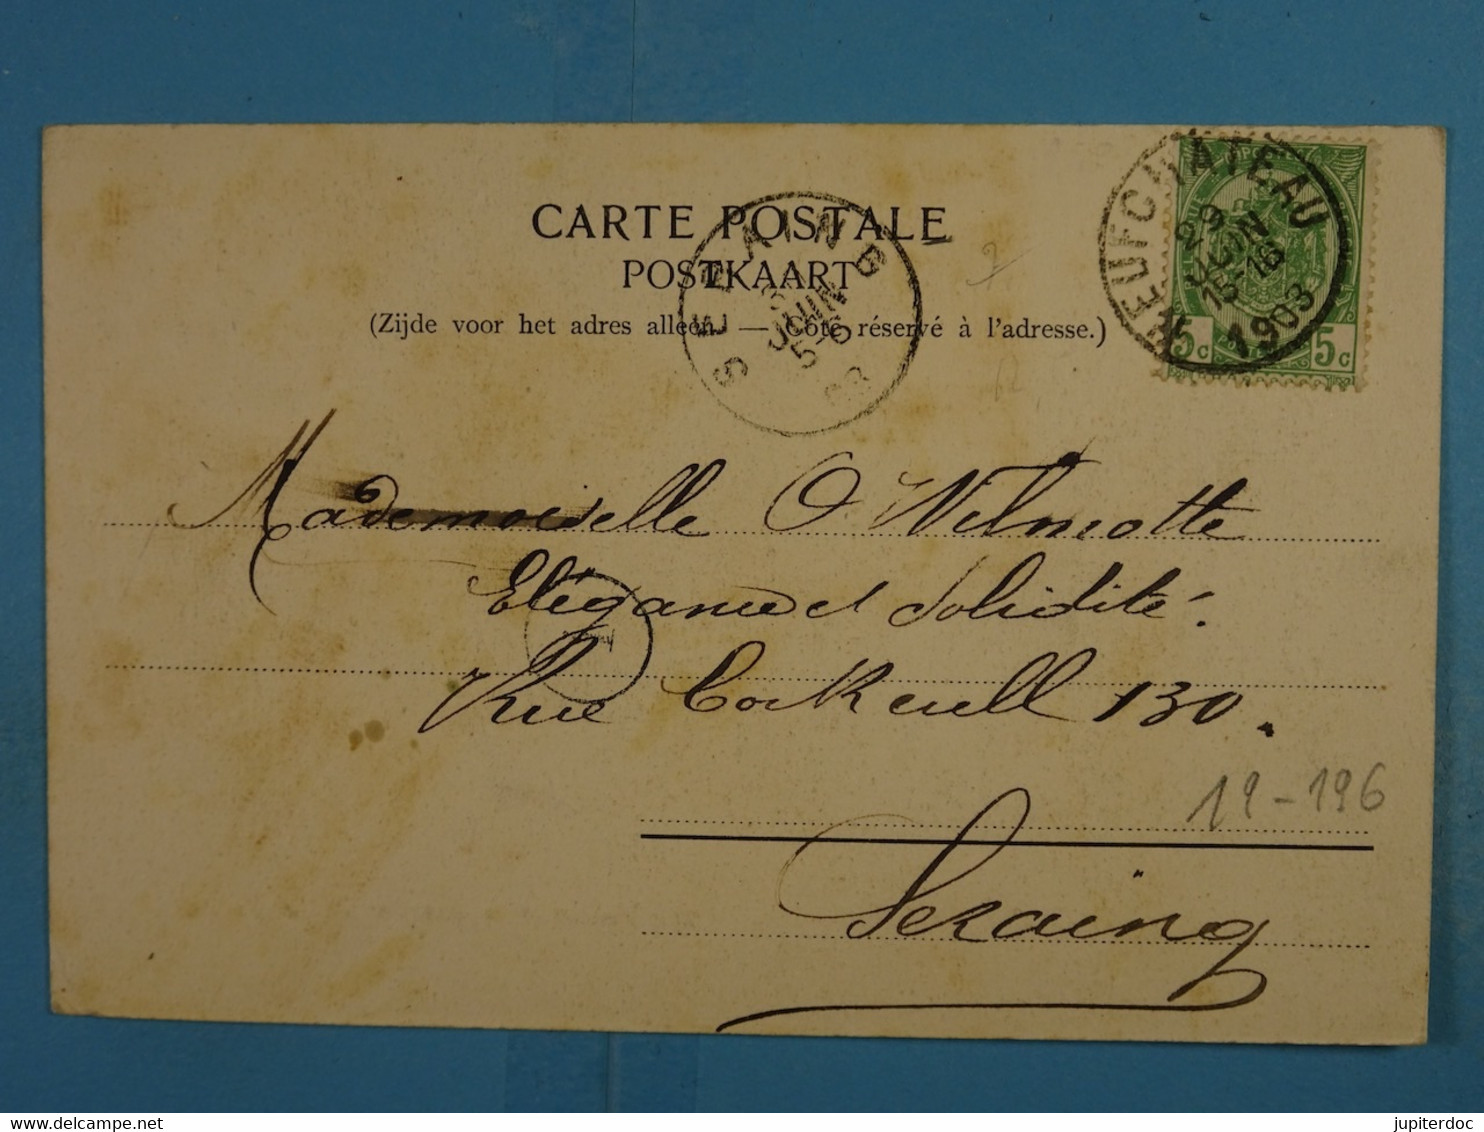 CARTE POSTALE
POSTKAART
(Zijde voor het adres alleen. — Côté réservé à l'adresse.)
NEUFCHATEAU
29
JUIN
15-16
1903
5c 5c
SERAING
JUIN
5-6
03
Mademoiselle O Wilmotte
Elégance et Solidité.
Rue Cockerill 130.
19-196
Seraing
www.delcampe.net
jupiterdoc